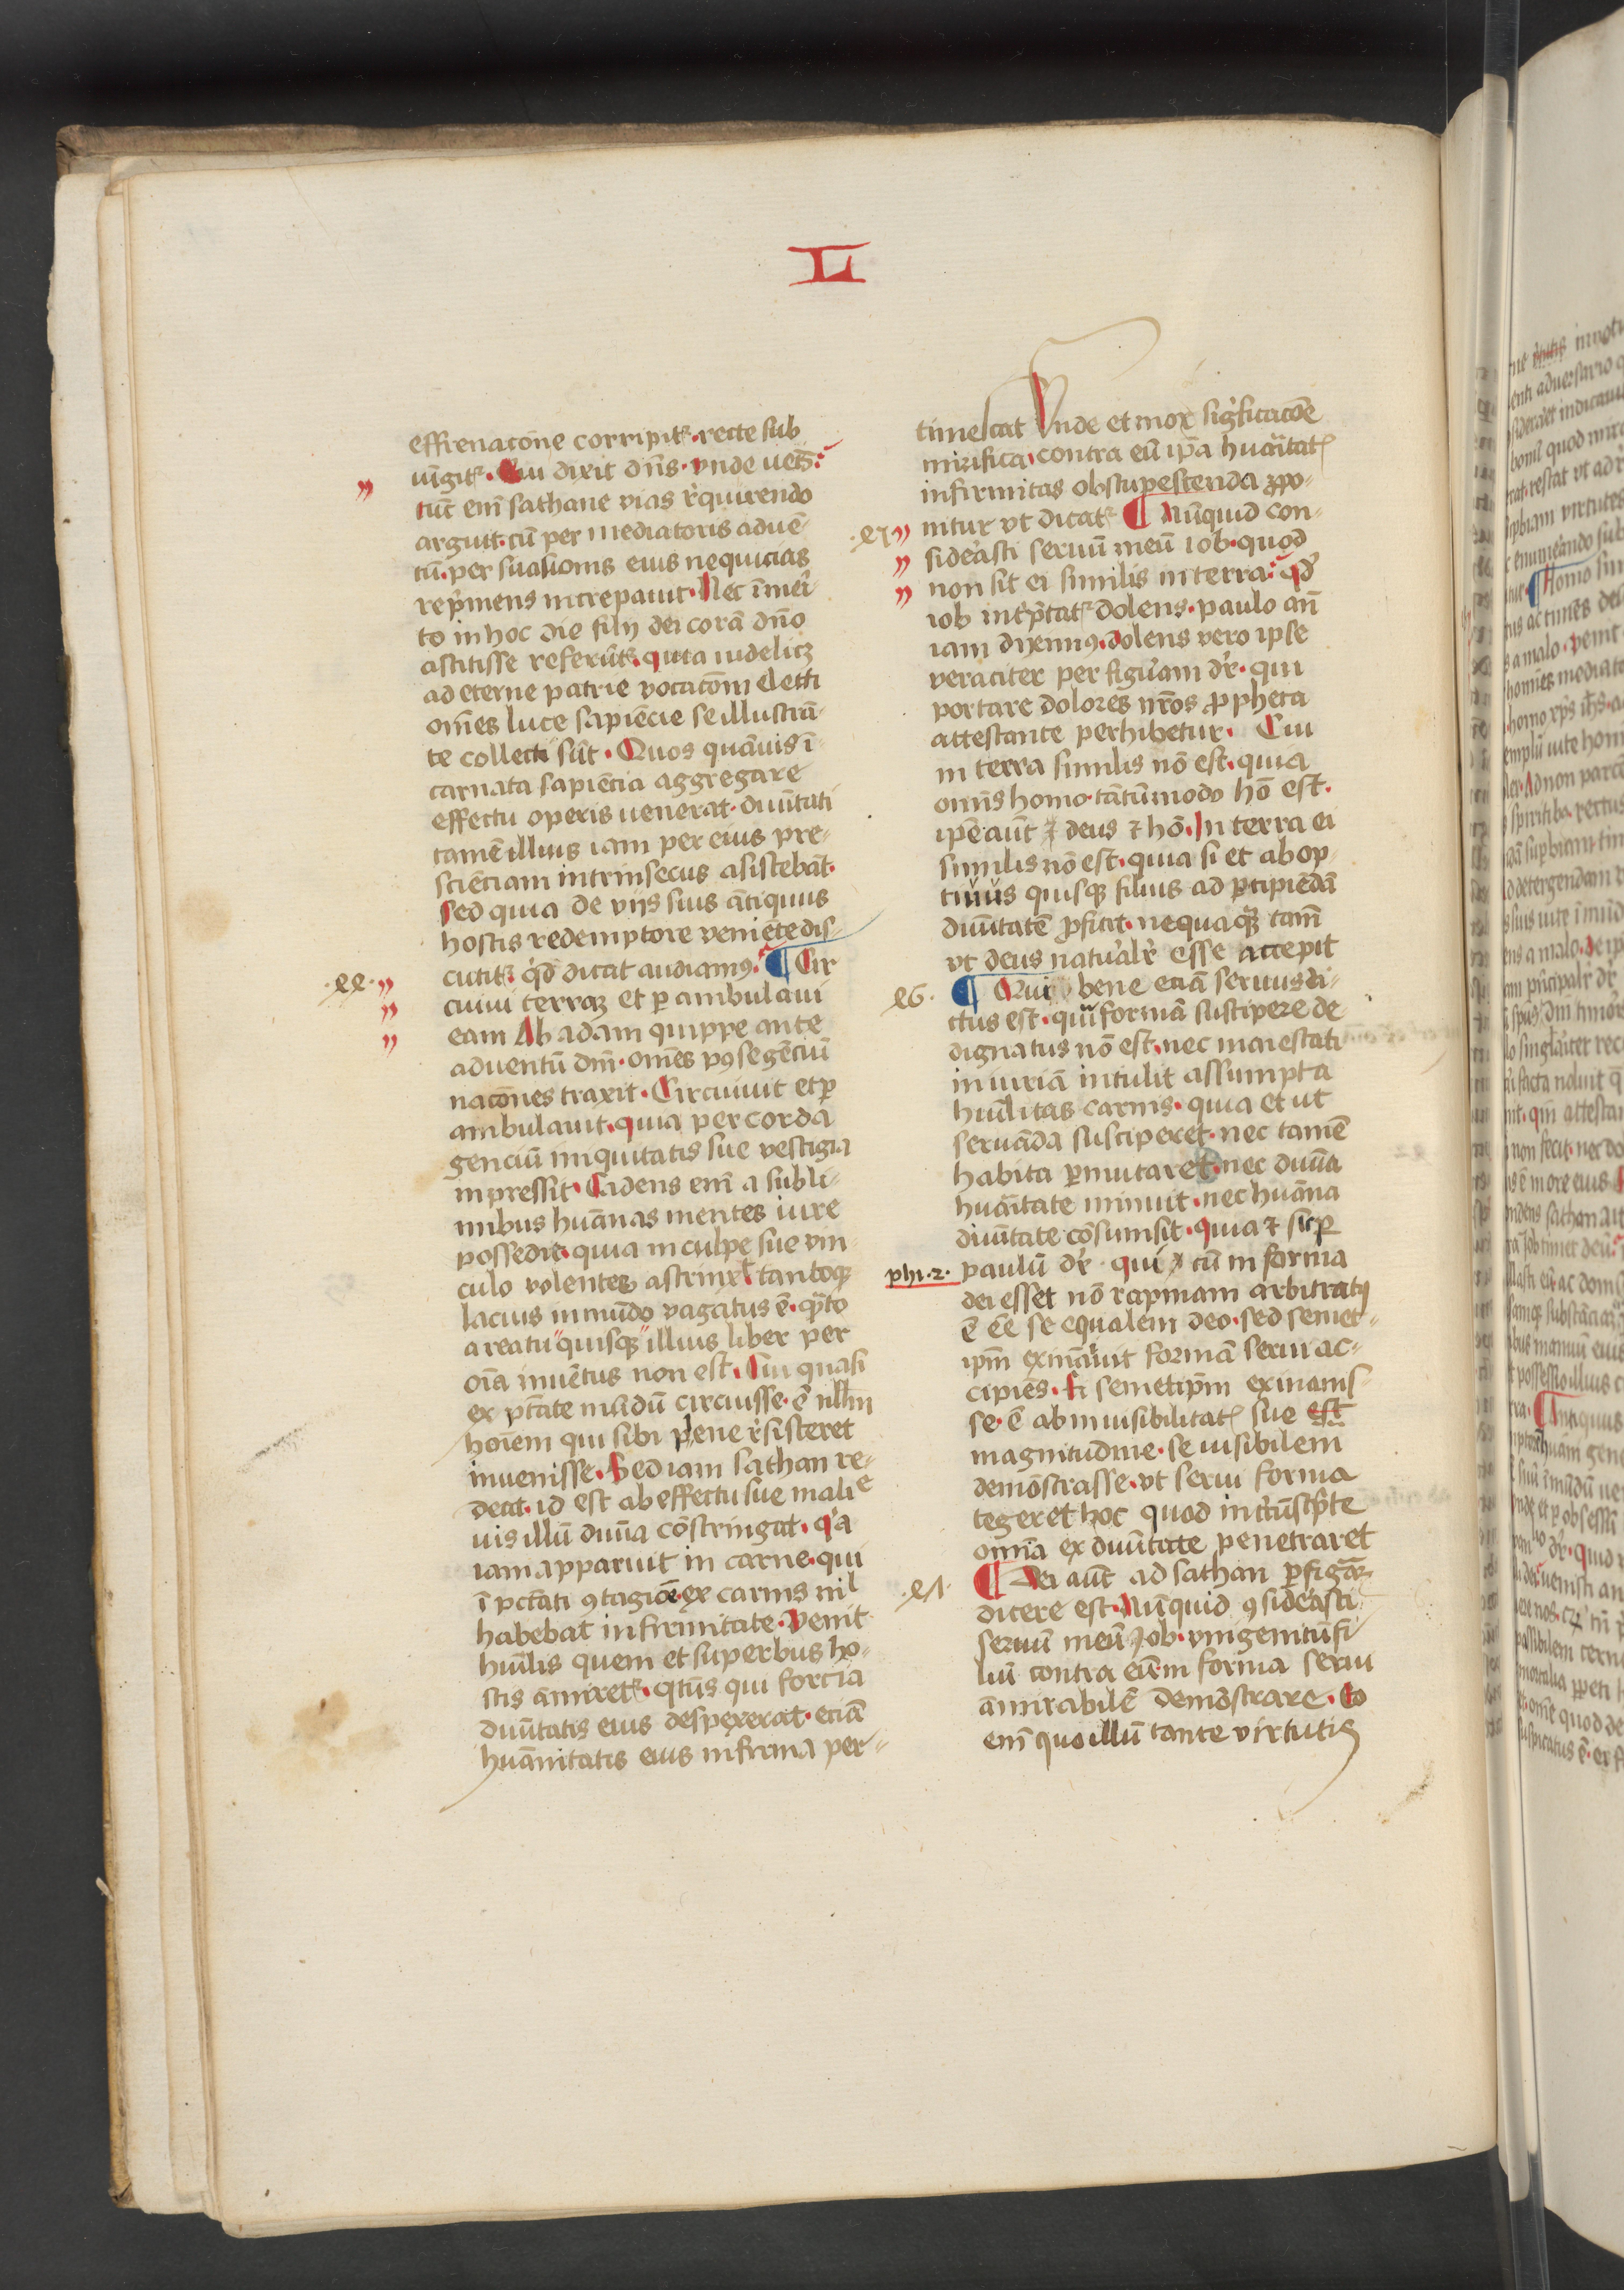 L
effrenacōne corripit᷑. recte sub
uīgit᷑. Cui dixit dn̄s. vnde uēis.
tūc enī sathane vias r̄quirendo
arguit. cū per mediatoris aduē
tū. per suasionis eius nequicias
rep̄mens increpauit. Nec īmeri
to in hoc die filij dei corā dn̄o
astitisse referūt᷑. quia uidelicꝫ
ad eterne patrie vocacōnē electi
om̄es luce sapiēcie se illustrā
te collecti sūt. Quos quāuis ī
carnata sapiēcia aggregare
effectu operis uenerat. diuītati
tamē illius iam per eius pre
sciēciam intrinsecus asistebāt.
sed quia de vijs suis ātiquus
hostis redemptore veniēte dis
cutit᷑. qͥd dicat audiamꝰ. ¶ Cir
.22.
cuiui terraꝫ et ꝑ ambulaui
eam Ab adam quippe ante
aduentū dn̄i. om̄es pꝰ se gēciū
nacōnes traxit. Circuiuit et ꝑ
ambulauit. quia per corda
genciū iniquitatis sue vestigia
inpressit. Cadens enī a subli
mibus huānas mentes iure
possedit. quia in culpe sue vin
culo volentes astrinxit tantoqꝫ
lacius in mūdo vagatus ē. qͣto
a reatu quisqꝫ illius liber per
oīa inuētus non est. Cui quasi
ex ptāte mūdū circuisse. ē nllm
hoīem qui sibi plene r̄sisteret
inuenisse. Sed iam sathan re
deat. id est ab effectu sue malicie
uis illū diuīa cōstringat. qͥa
iam apparuit in carne. qui
ī pctāti ꝯtagione. ex carnis nil
habebat infirmitate. Venit
huīlis quem et superbus ho
stis āmiret᷑. qtūs qui forcia
diuītatis eius despexerat. eciā
huānitatis eius infirma per
timescat Vnde et mox sigͥficacōe
mirifica. contra eū ipā huāitat᷑
infirmitas obstupescenda ꝓpo
nitur vt dicat᷑ ¶ Nūquid con
.23
siderasti seruū meū iob. quod
non sit ei similis in terra. qͦd
iob int̄p̄tat᷑ dolens. paulo an̄
iam diximꝰ. dolens vero ipse
veraciter per figuram dr̄. qui
portare dolores nr̄os ꝓpheta
attestante perhibetur. Cui
in terra similis nō est. quia
om̄is homo tātūmodo hō est.
ipē aūt ⁊ deus ⁊ hō. In terra ei
similis nō est. quia si et abop
tiuus quisqꝫ filius ad ꝑcipiēdā
diuītatē ꝓficit. nequaqꝫ tam̄
vt deus natural̄r esse accepit
.26.
¶ Qui bene eciā seruus di
ctus est. qui formā suscipere de
dignatus nō est. nec maiestati
iniuriā intulit assumpta
huīlitas carnis. quia et ut
seruāda susciperet. nec tamē
habita ꝑmutaret. nec diuīa
huāitate minuit. nec huāna
diuītate cōsumsit. quia ⁊ si ꝑ
phi.2.
paulū dr̄. qui cū in forma
dei esset nō rapinam arbitratꝰ
ē eē se equalem deo. sed semet
ipm̄ exinaniuit formā serui ac
cipiēs. Ei semetip̄m exinanis
se. ē ab inuisibilitat᷑ sue est
magnitudine. se uisibilem
demōstrasse. vt serui forma
tegeret hoc quod incͥcūsc̄pte
omīa ex diuītate penetraret
.21.
¶ Dei aūt ad sathan ꝑ figurā
dicere est. Nūquid ꝯsiderasti
seruū meū Job. vnigenitū fi
liū contra eū in forma serui
āmirabilē demōstrare. Eo
enī quo illū tante virtutis